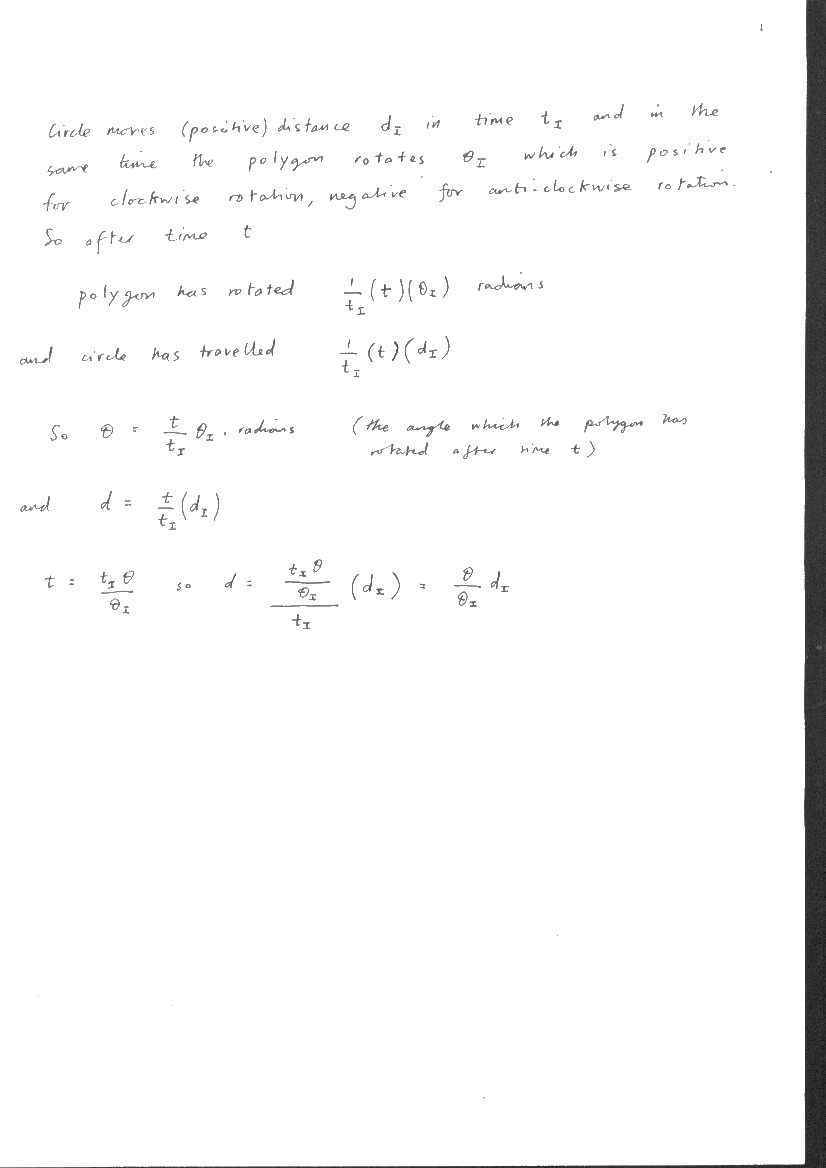 1
Circle moves (positive) distance d_I in time t_I and in the
same time the polygon rotates θ_I which is positive
for clockwise rotation, negative for anti-clockwise rotation.
So after time t
polygon has rotated 1/t_I (t)(θ_I) radians
and circle has travelled 1/t_I (t)(d_I)
So θ = t/t_I θ_I . radians (the angle which the polygon has
rotated after time t)
and d = t/t_I (d_I)
t = t_I θ/θ_I so d = (t_I θ/θ_I)/t_I (d_I) = θ/θ_I d_I